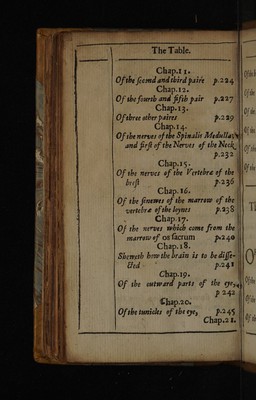 The Table.
Chap.11.
Of the second and third paire p.224
Chap.12.
Of the fourth and fifth pair p.227
Chap.13.
Of three other paires p.229
Chap.14.
Of the nerves of the Spinalis Medulla
and first of the Nerves of the Neck
p.232
Chap.15.
Of the nerves of the Vertebræ of the
brest p.236
Chap.16.
Of the sinewes of the marrow of the
vertebræ of the loynes p.238
Chap.17.
Of the nerves which come from the
marrow of os sacrum p.240
Chap.18.
Sheweth how the brain is to be disse-
cted p.241
Chap.19.
Of the outward parts of the eye,
p 242
Chap.20.
Of the tunicles of the eye, p.245
Chap.21.